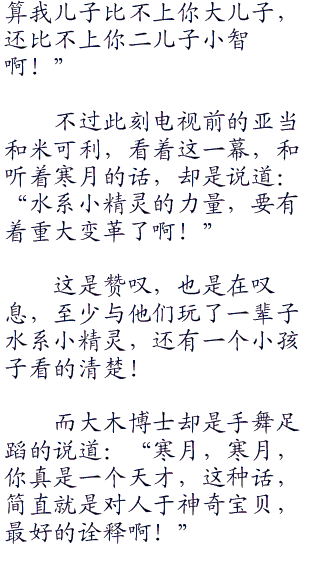 算我儿子比不上你大儿子，
还比不上你二儿子小智
啊！”
不过此刻电视前的亚当
和米可利，看着这一幕，和
听着寒月的话，却是说道：
“水系小精灵的力量，要有
着重大变革了啊！”
这是赞叹，也是在叹
息，至少与他们玩了一辈子
水系小精灵，还有一个小孩
子看的清楚！
而大木博士却是手舞足
蹈的说道：“寒月，寒月，
你真是一个天才，这种话，
简直就是对人于神奇宝贝，
最好的诠释啊！”